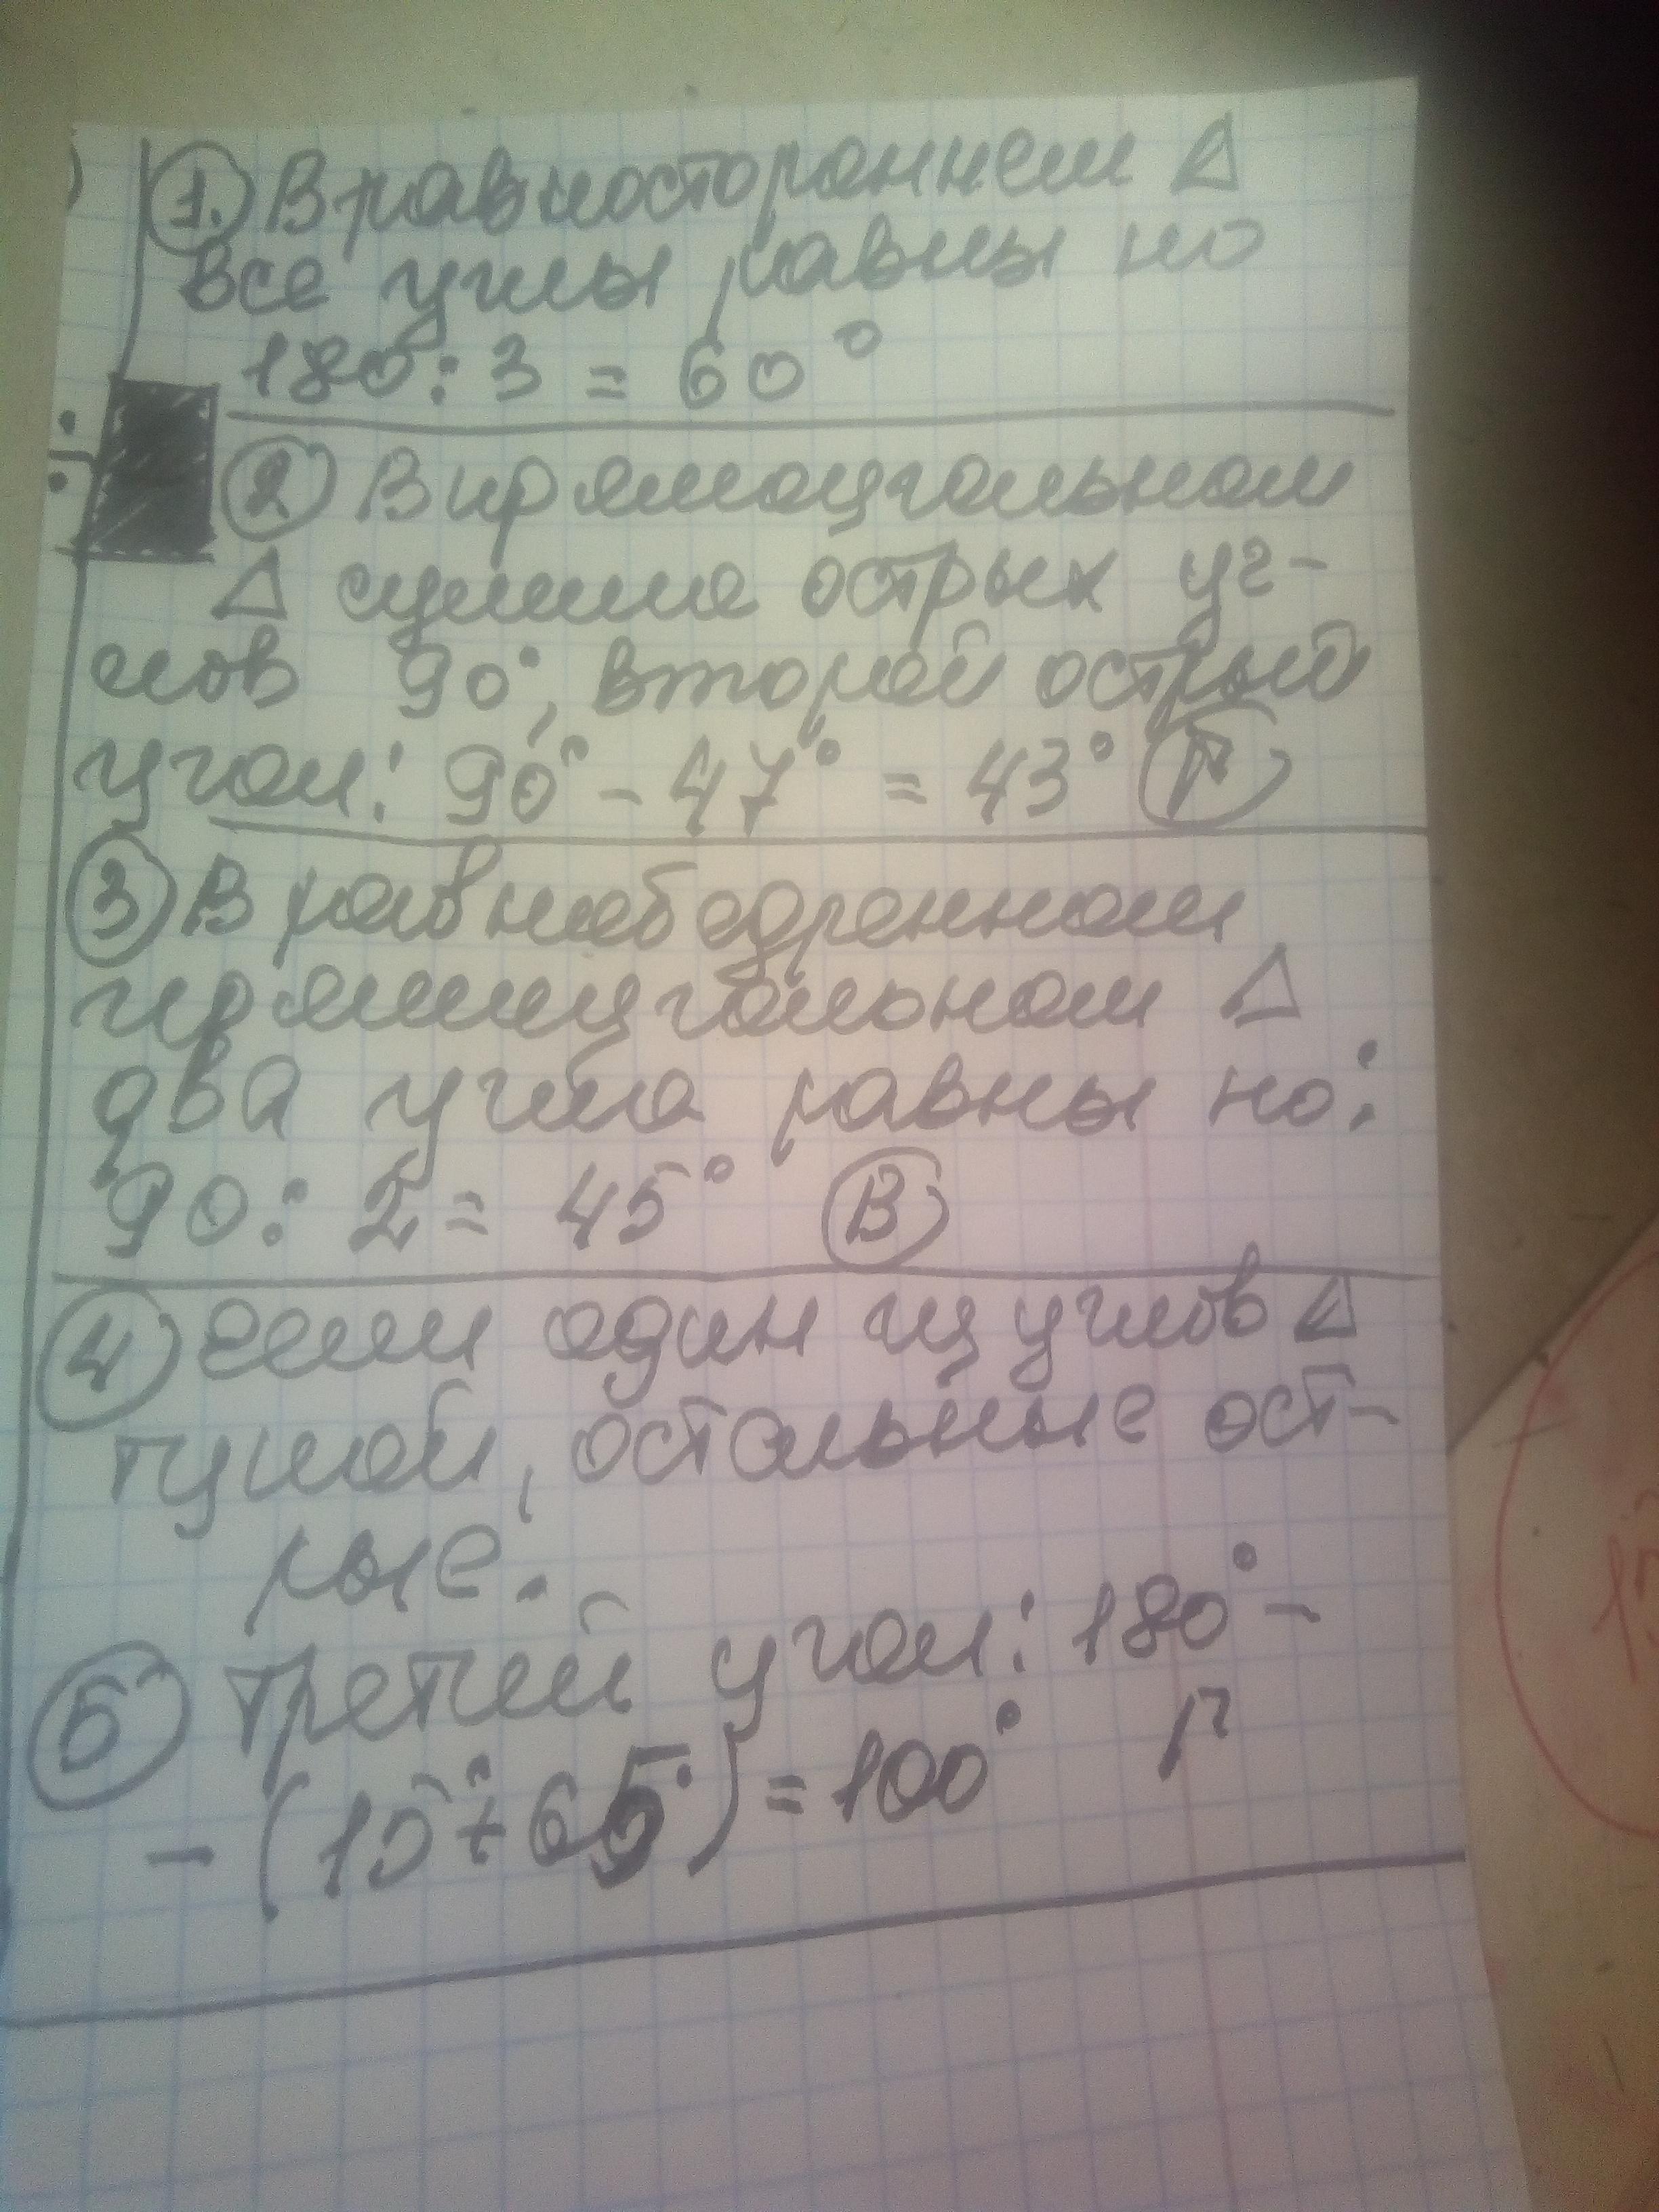 1. В равностороннем Δ
все углы равны по
180 : 3 = 60°
2 В прямоугольном
Δ сумма острых уг-
лов 90°, второй острый
угол: 90° - 47° = 43° Г
3 В равнобедренном
прямоугольном Δ
два угла равны по:
90 : 2 = 45° В
4 если один из углов Δ
тупой, остальные ост-
рые.
5 третий угол: 180° -
- (15° + 65°) = 100° Г